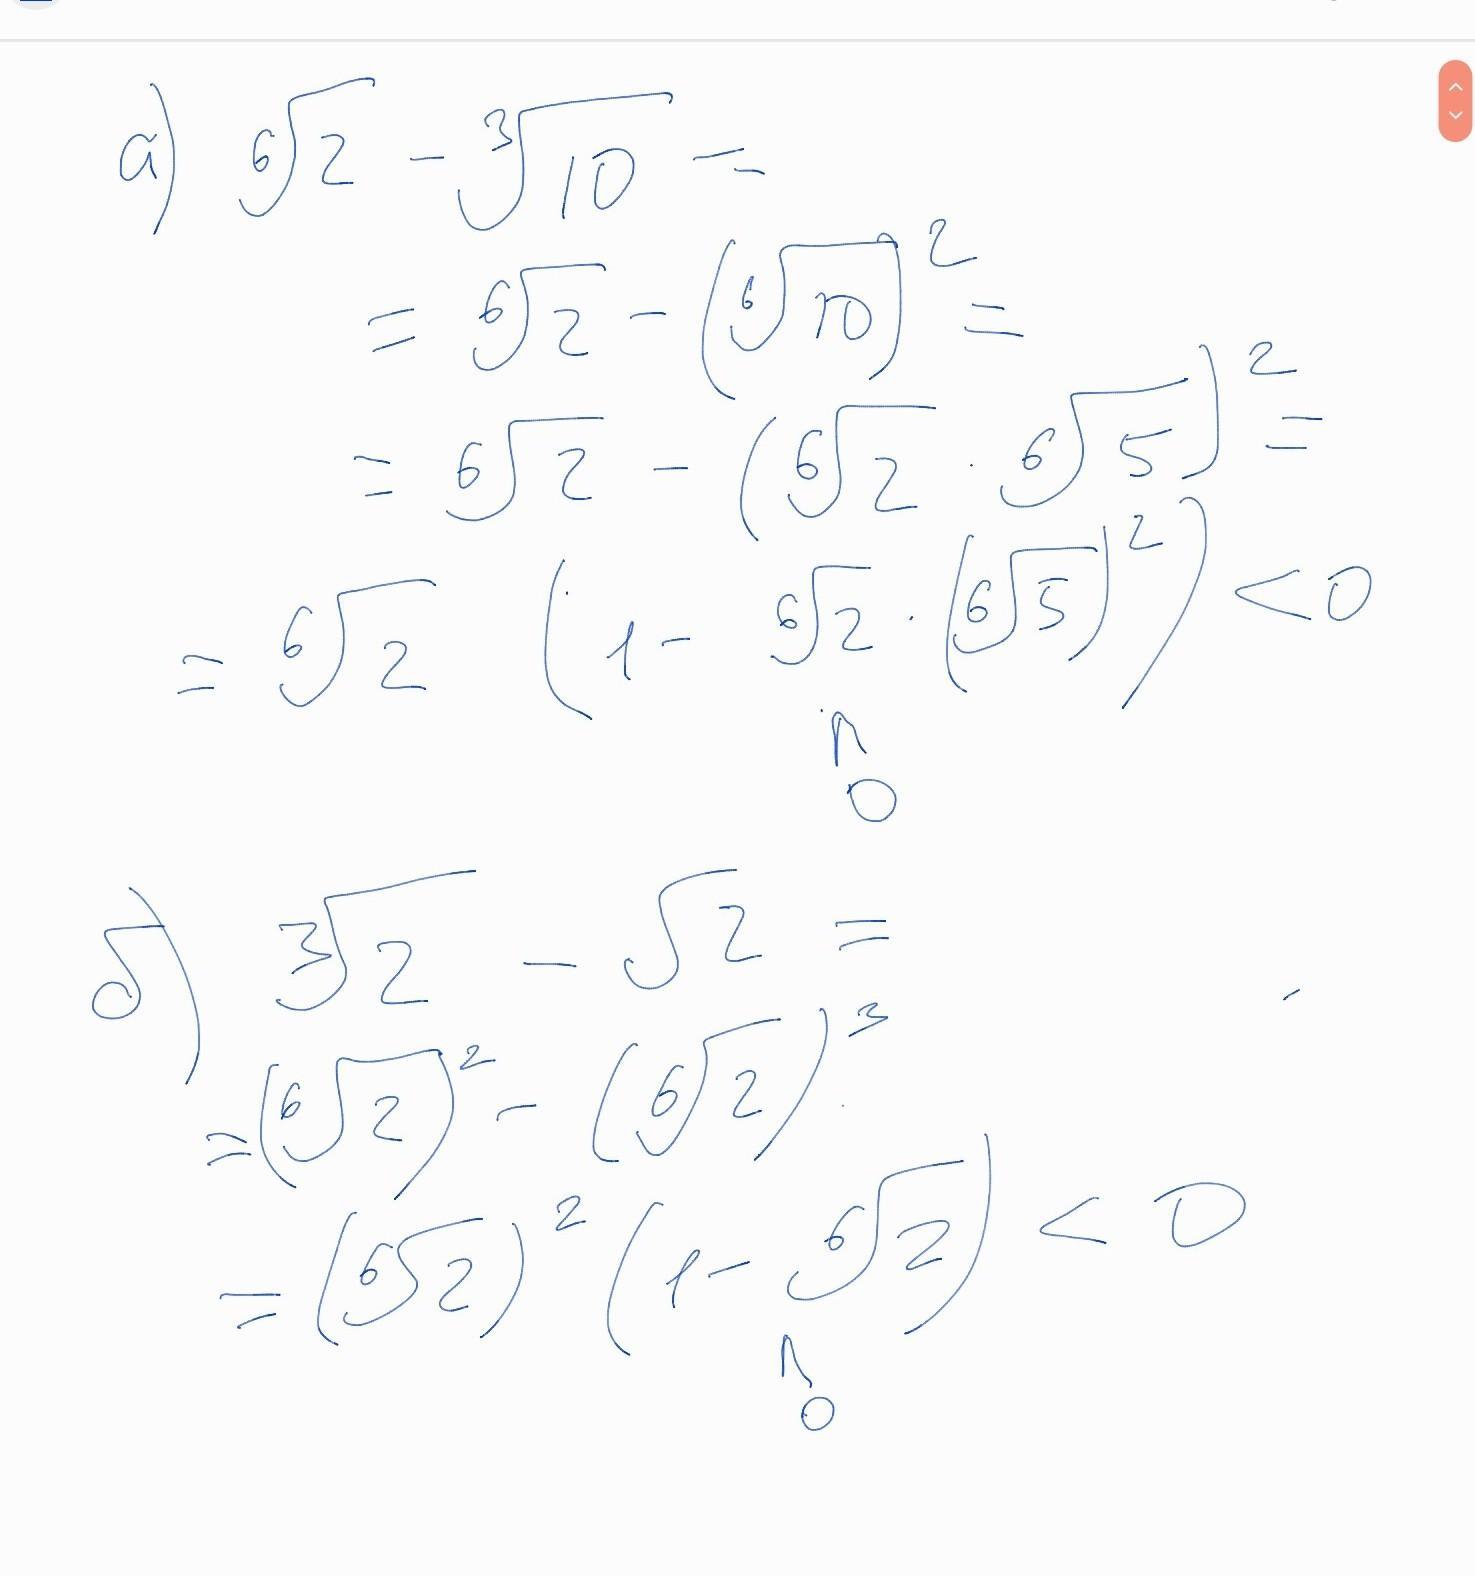 а) ⁶√2 - ³√10 =
= ⁶√2 - (⁶√10)² =
= ⁶√2 - (⁶√2 · ⁶√5)² =
= ⁶√2 (1 - ⁶√2 · (⁶√5)²) < 0
∧
0
б) ³√2 - √2 =
= (⁶√2)² - (⁶√2)³
= (⁶√2)² (1 - ⁶√2) < 0
∧
0